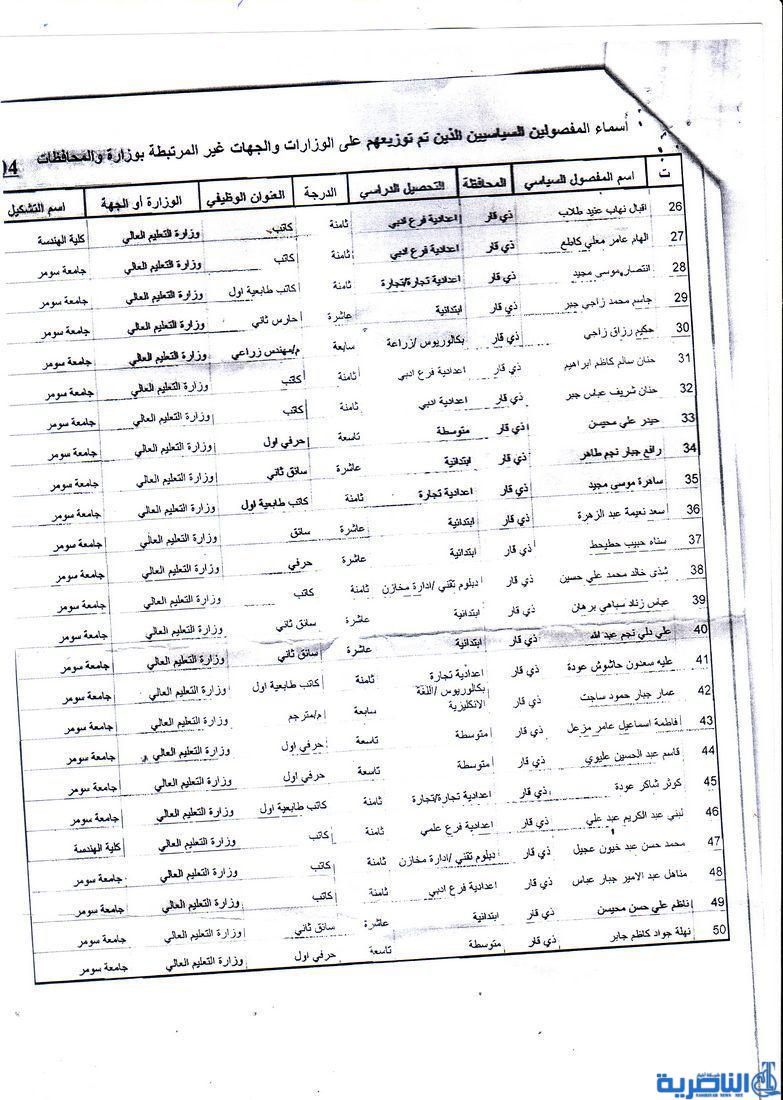 أسماء المفصولين السياسيين الذين تم توزيعهم على الوزارات والجهات غير المرتبطة بوزارة والمحافظات 04
ت اسم المفصول السياسي المحافظة التحصيل الدراسي الدرجة العنوان الوظيفي الوزارة أو الجهة اسم التشكيل
26 اقبال نهاب عنيد طلاب ذي قار اعدادية فرع ادبي ثامنة كاتب وزارة التعليم العالي كلية الهندسة
27 الهام عامر معلي كاطع ذي قار اعدادية فرع ادبي ثامنة كاتب وزارة التعليم العالي جامعة سومر
28 انتصار موسى مجيد ذي قار اعدادية تجارة/تجارة ثامنة كاتب طابعية اول وزارة التعليم العالي جامعة سومر
29 جاسم محمد زاجي جبر ذي قار ابتدائية عاشرة حارس ثاني وزارة التعليم العالي جامعة سومر
30 حكيم رزاق زاجي ذي قار بكالوريوس /زراعة سابعة م/مهندس زراعي وزارة التعليم العالي جامعة سومر
31 حنان سالم كاظم ابراهيم ذي قار اعدادية فرع ادبي ثامنة كاتب وزارة التعليم العالي جامعة سومر
32 حنان شريف عباس جبر ذي قار اعدادية ادبي ثامنة كاتب وزارة التعليم العالي جامعة سومر
33 حيدر علي محيسن ذي قار متوسطة تاسعة حرفي اول وزارة التعليم العالي جامعة سومر
34 رافع جبار نجم طاهر ذي قار ابتدائية عاشرة سائق ثاني وزارة التعليم العالي جامعة سومر
35 ساهرة موسى مجيد ذي قار اعدادية تجارة ثامنة كاتب طابعية اول وزارة التعليم العالي جامعة سومر
36 سعد نعيمة عبد الزهرة ذي قار ابتدائية عاشرة سائق وزارة التعليم العالي جامعة سومر
37 سناء حبيب حطيحط ذي قار ابتدائية عاشرة حرفي وزارة التعليم العالي جامعة سومر
38 شذى خالد محمد علي حسين ذي قار دبلوم تقني /ادارة مخازن ثامنة كاتب وزارة التعليم العالي جامعة سومر
39 عباس زناد سباهي برهان ذي قار ابتدائية عاشرة سائق ثاني وزارة التعليم العالي جامعة سومر
40 علي دلي نجم عبد الله ذي قار ابتدائية عاشرة سائق ثاني وزارة التعليم العالي جامعة سومر
41 عليه سعدون حاشوش عودة ذي قار اعدادية تجارة ثامنة كاتب طابعية اول وزارة التعليم العالي جامعة سومر
42 عمار جبار حمود ساجت ذي قار بكالوريوس /اللغة الانكليزية سابعة م/مترجم وزارة التعليم العالي جامعة سومر
43 فاطمة اسماعيل عامر مزعل ذي قار متوسطة تاسعة حرفي اول وزارة التعليم العالي جامعة سومر
44 قاسم عبد الحسين عليوي ذي قار متوسطة تاسعة حرفي اول وزارة التعليم العالي جامعة سومر
45 كوثر شاكر عودة ذي قار اعدادية تجارة/تجارة ثامنة كاتب طابعية اول وزارة التعليم العالي جامعة سومر
46 لبنى عبد الكريم عبد علي ذي قار اعدادية فرع علمي ثامنة كاتب وزارة التعليم العالي كلية الهندسة
47 محمد حسن عبد خيون عجيل ذي قار دبلوم تقني /ادارة مخازن ثامنة كاتب وزارة التعليم العالي جامعة سومر
48 مناهل عبد الامير جبار عباس ذي قار اعدادية فرع ادبي ثامنة كاتب وزارة التعليم العالي جامعة سومر
49 ناظم علي حسن محيسن ذي قار ابتدائية عاشرة سائق ثاني وزارة التعليم العالي جامعة سومر
50 نهلة جواد كاظم جابر ذي قار متوسطة تاسعة حرفي اول وزارة التعليم العالي جامعة سومر
شبكة اخبار
الناصرية
NASIRIYAH NEWS NET